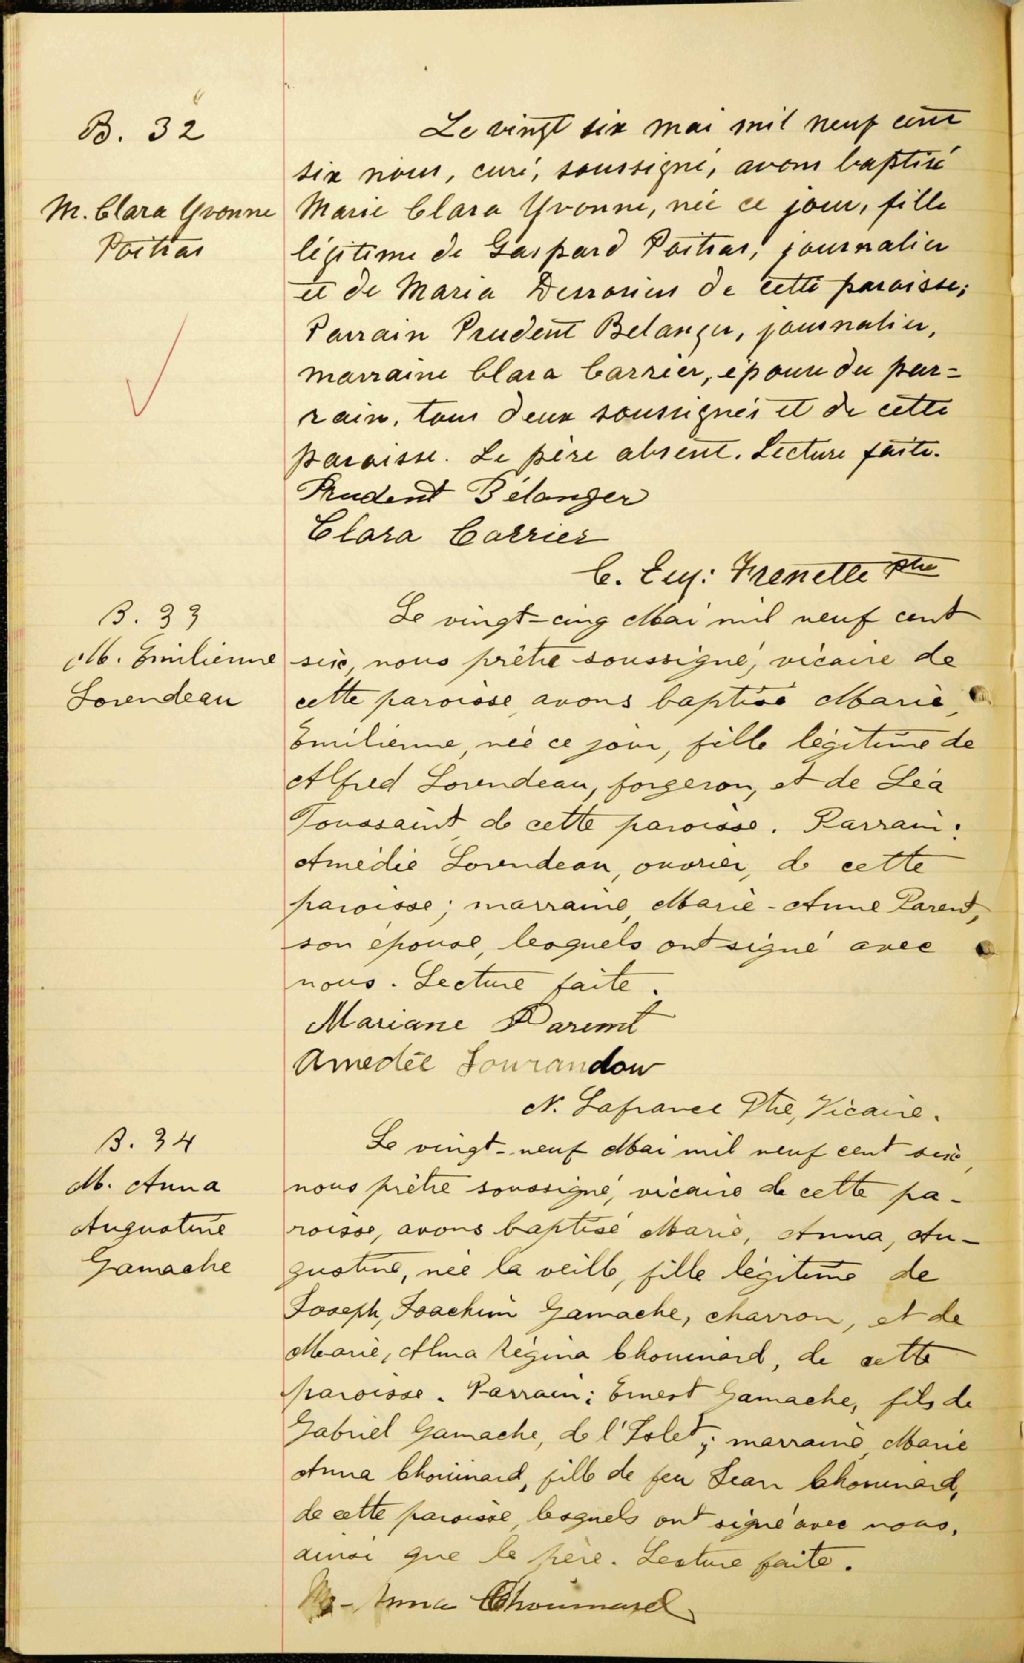 B. 32
M. Clara Yvonne
Poitras
Le vingt six mai mil neuf cent
six nous, curé, soussigné, avons baptisé
Marie Clara Yvonne, née ce jour, fille
légitime de Gaspard Poitras, journalier
et de Maria Desrosiers de cette paroisse;
Parrain Prudent Belanger, journalier,
marraine Clara Carrier, épouse du par=
rain, tous deux soussignés et de cette
paroisse. Le père absent. Lecture faite.
Prudent Bélanger
Clara Carrier
C. Eug: Frenette Ptre
B. 33
M. Emilienne
Lorendeau
Le vingt=cinq Mai mil neuf cent
six, nous prêtre soussigné, vicaire de
cette paroisse, avons baptisé Marie,
Emilienne, née ce jour, fille légitime de
Alfred Lorendeau, forgeron, et de Léa
Toussaint, de cette paroisse. Parrain:
Amédée Lorendeau, ouvrier, de cette
paroisse; marraine, Marie-Anne Parent,
son épouse, lesquels ont signé avec
nous. Lecture faite.
Mariane Parent
Amedée Lourandow
N. Lafrance Ptre, Vicaire.
B. 34
M. Anna
Augustine
Gamache
Le vingt-neuf Mai mil neuf cent six,
nous prêtre soussigné, vicaire de cette pa-
roisse, avons baptisé Marie, Anna, Au-
gustine, née la veille, fille légitime de
Joseph, Joachim Gamache, charron, et de
Marie, Alma Régina Chouinard, de cette
paroisse. Parrain: Ernest Gamache, fils de
Gabriel Gamache, de l'Islet; marraine, Marie
Anna Chouinard, fille de feu Jean Chouinard,
de cette paroisse, lesquels ont signé avec nous,
ainsi que le père. Lecture faite.
M- Anna Chouinard